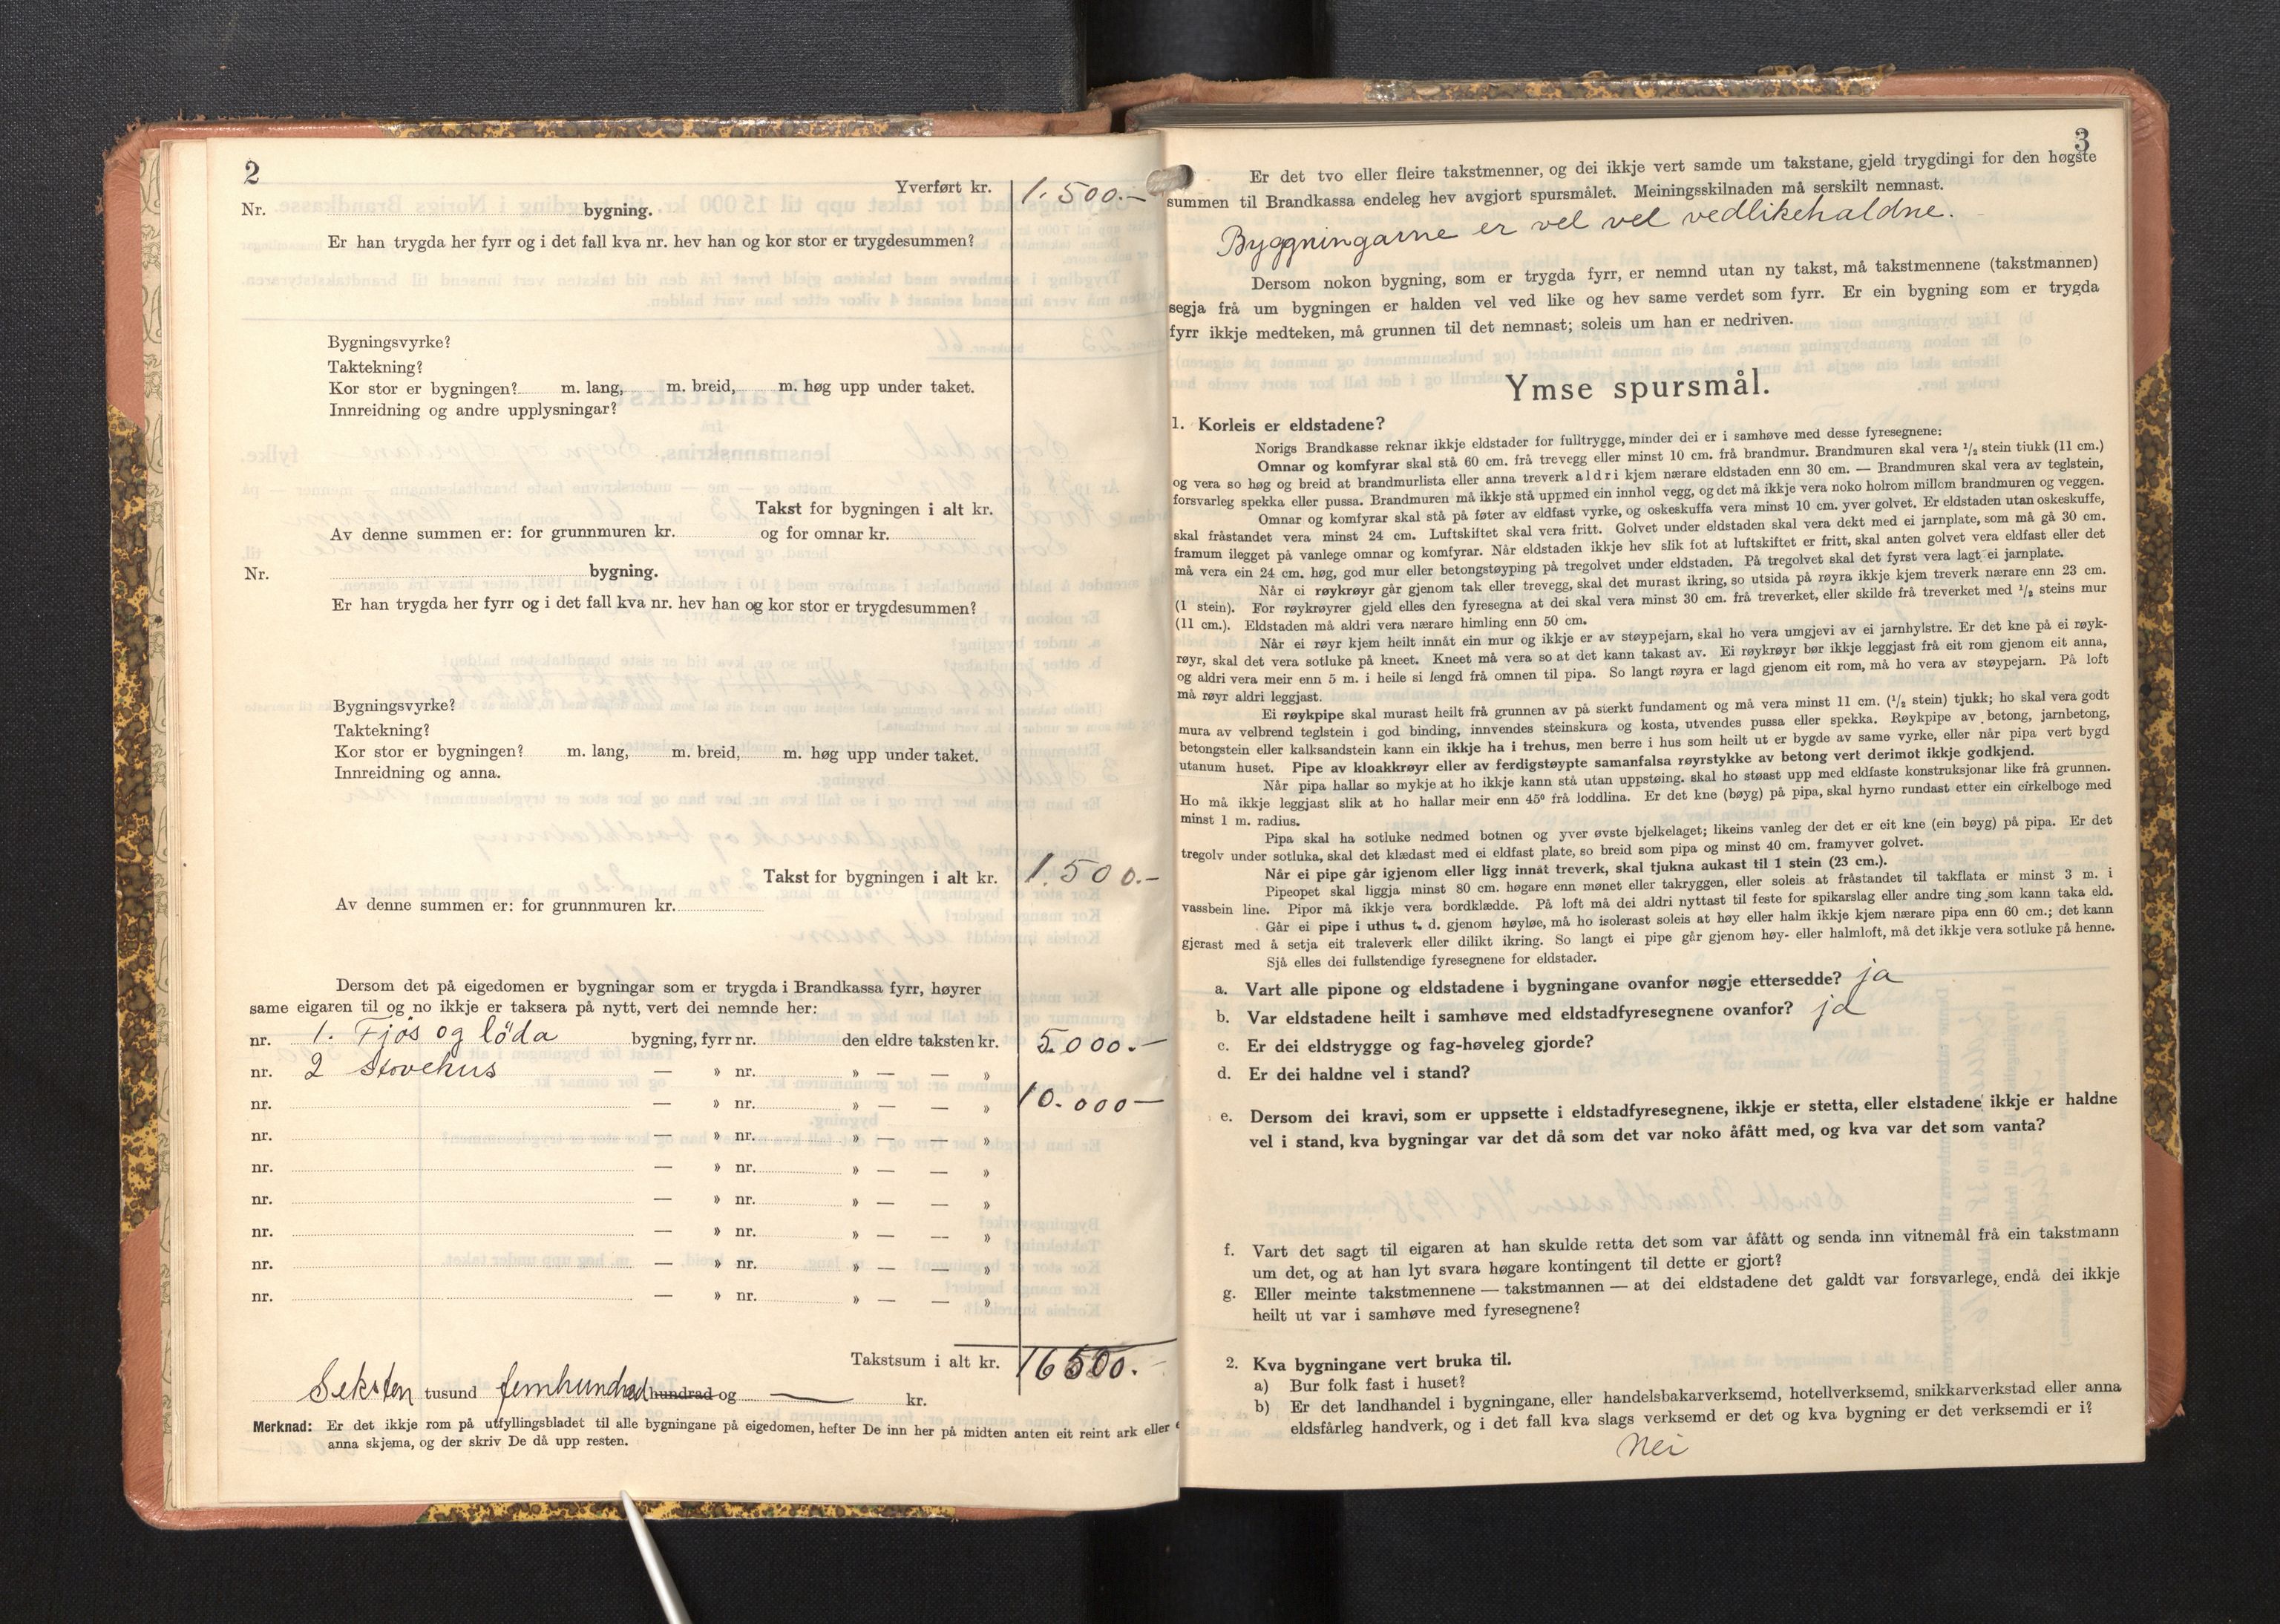 2
Yverført kr. 1.500.-
Nr. bygning.
Er han trygda her fyrr og i det fall kva nr. hev han og kor stor er trygdesummen?
Bygningsvyrke?
Taktekning?
Kor stor er bygningen? m. lang, m. breid, m. høg upp under taket.
Innreidning og andre upplysningar?
Takst for bygningen i alt kr.
Av denne summen er: for grunnmuren kr. og for omnar kr.
Nr. bygning.
Er han trygda her fyrr og i det fall kva nr. hev han og kor stor er trygdesummen?
Bygningsvyrke?
Taktekning?
Kor stor er bygningen? m. lang, m. breid, m. høg upp under taket.
Innreidning og anna.
Takst for bygningen i alt kr. 1.500.-
Av denne summen er: for grunnmuren kr.
Dersom det på eigedomen er bygningar som er trygda i Brandkassa fyrr, høyrer
same eigaren til og no ikkje er taksera på nytt, vert dei nemnde her:
nr. 1. Fjøs og löda bygning, fyrr nr. den eldre taksten kr. 5.000.-
nr. 2 Stovehus — » nr. » — — »
nr. — » nr. » — — » 10.000-
nr. — » nr. » — — »
nr. — » nr. » — — »
nr. — » nr. » — — »
nr. — » nr. » — — »
nr. — » nr. » — — »
nr. — » nr. » — — »
Takstsum i alt kr. 16500.-
Seksten tusund femhundrad hundrad og — kr.
Merknad: Er det ikkje rom på utfyllingsbladet til alle bygningane på eigedomen, hefter De inn her på midten anten eit reint ark eller
anna skjema, og der skriv De då upp resten.
3
Er det tvo eller fleire takstmenner, og dei ikkje vert samde um takstane, gjeld trygdingi for den høgste
summen til Brandkassa endeleg hev avgjort spursmålet. Meiningsskilnaden må serskilt nemnast.
Byggningarne er vel vel vedlikehaldne.
Dersom nokon bygning, som er trygda fyrr, er nemnd utan ny takst, må takstmennene (takstmannen)
segja frå um bygningen er halden vel ved like og hev same verdet som fyrr. Er ein bygning som er trygda
fyrr ikkje medteken, må grunnen til det nemnast; soleis um han er nedriven.
Ymse spursmål.
1. Korleis er eldstadene?
Norigs Brandkasse reknar ikkje eldstader for fulltrygge, minder dei er i samhøve med desse fyresegnene:
Omnar og komfyrar skal stå 60 cm. frå trevegg eller minst 10 cm. frå brandmur. Brandmuren skal vera 1/2 stein tiukk (11 cm.)
og vera so høg og breid at brandmurlista eller anna treverk aldri kjem nærare eldstaden enn 30 cm. — Brandmuren skal vera av teglstein,
forsvarleg spekka eller pussa. Brandmuren må ikkje stå uppmed ein innhol vegg, og det må ikkje vera noko holrom millom brandmuren og veggen.
Omnar og komfyrar skal stå på føter av eldfast vyrke, og oskeskuffa vera minst 10 cm. yver golvet. Er eldstaden utan oskeskuffe,
skal fråstandet vera minst 24 cm. Luftskiftet skal vera fritt. Golvet under eldstaden skal vera dekt med ei jarnplate, som må gå 30 cm.
framum ilegget på vanlege omnar og komfyrar. Når eldstaden ikkje hev slik fot at luftskiftet er fritt, skal anten golvet vera eldfast eller det
må vera ein 24 cm. høg, god mur eller betongstøyping på tregolvet under eldstaden. På tregolvet skal det fyrst vera lagt ei jarnplate.
Når ei røykrøyr går gjenom tak eller trevegg, skal det murast ikring, so utsida på røyra ikkje kjem treverk nærare enn 23 cm.
(1 stein). For røykrøyrer gjeld elles den fyresegna at dei skal vera minst 30 cm. frå treverket, eller skilde frå treverket med 1/2 steins mur
(11 cm.). Eldstaden må aldri vera nærare himling enn 50 cm.
Når ei røyr kjem heilt innåt ein mur og ikkje er av støypejarn, skal ho vera umgjevi av ei jarnhylstre. Er det kne på ei røyk-
røyr, skal det vera sotluke på kneet. Kneet må vera so at det kann takast av. Ei røykrøyr bør ikkje leggjast frå eit rom gjenom eit anna,
og aldri vera meir enn 5 m. i heile si lengd frå omnen til pipa. So langt røyra er lagd gjenom eit rom, må ho vera av støypejarn. På loft
må røyr aldri leggjast.
Ei røykpipe skal murast heilt frå grunnen av på sterkt fundament og må vera minst 11 cm. (1/2 stein) tjukk; ho skal vera godt
mura av velbrend teglstein i god binding, innvendes steinskura og kosta, utvendes pussa eller spekka. Røykpipe av betong, jarnbetong,
betongstein eller kalksandstein kann ein ikkje ha i trehus, men berre i hus som heilt ut er bygde av same vyrke, eller når pipa vert bygd
utanum huset. Pipe av kloakkrøyr eller av ferdigstøypte samanfalsa røyrstykke av betong vert derimot ikkje godkjend.
Når pipa hallar so mykje at ho ikkje kann stå utan uppstøing. skal ho støast upp med eldfaste konstruksjonar like frå grunnen.
Ho må ikkje leggjast slik at ho hallar meir enn 45° frå loddlina. Er det kne (bøyg) på pipa, skal hyrno rundast etter ein cirkelboge med
minst 1 m. radius.
Pipa skal ha sotluke nedmed botnen og yver øvste bjelkelaget; likeins vanleg der det er eit kne (ein bøyg) på pipa. Er det
tregolv under sotluka, skal det klædast med ei eldfast plate, so breid som pipa og minst 40 cm. framyver golvet.
Når ei pipe går igjenom eller ligg innåt treverk, skal tjukna aukast til 1 stein (23 cm.).
Pipeopet skal liggja minst 80 cm. høgare enn mønet eller takryggen, eller soleis at fråstandet til takflata er minst 3 m. i
vassbein line. Pipor må ikkje vera bordklædde. På loft må dei aldri nyttast til feste for spikarslag eller andre ting som kann taka eld.
Går ei pipe i uthus t. d. gjenom høyløe, må ho isolerast soleis at høy eller halm ikkje kjem nærare pipa enn 60 cm.; det kann
gjerast med å setja eit traleverk eller dilikt ikring. So langt ei pipe går gjenom høy- eller halmloft, må det ikkje vera sotluke på henne.
Sjå elles dei fullstendige fyresegnene for eldstader.
a. Vart alle pipone og eldstadene i bygningane ovanfor nøgje ettersedde? ja
b. Var eldstadene heilt i samhøve med eldstadfyresegnene ovanfor? ja
c. Er dei eldstrygge og fag-høveleg gjorde?
d. Er dei haldne vel i stand?
e. Dersom dei kravi, som er uppsette i eldstadfyresegnene, ikkje er stetta, eller elstadene ikkje er haldne
vel i stand, kva bygningar var det då som det var noko åfått med, og kva var det som vanta?
f. Vart det sagt til eigaren at han skulde retta det som var åfått og senda inn vitnemål frå ein takstmann
um det, og at han lyt svara høgare kontingent til dette er gjort?
g. Eller meinte takstmennene — takstmannen — at dei eldstadene det galdt var forsvarlege, endå dei ikkje
heilt ut var i samhøve med fyresegnene?
2. Kva bygningane vert bruka til.
a) Bur folk fast i huset?
b) Er det landhandel i bygningane, eller handelsbakarverksemd, hotellverksemd, snikkarverkstad eller anna
eldsfårleg handverk, og i det fall kva slags verksemd er det og kva bygning er det verksemdi er i?
Nei